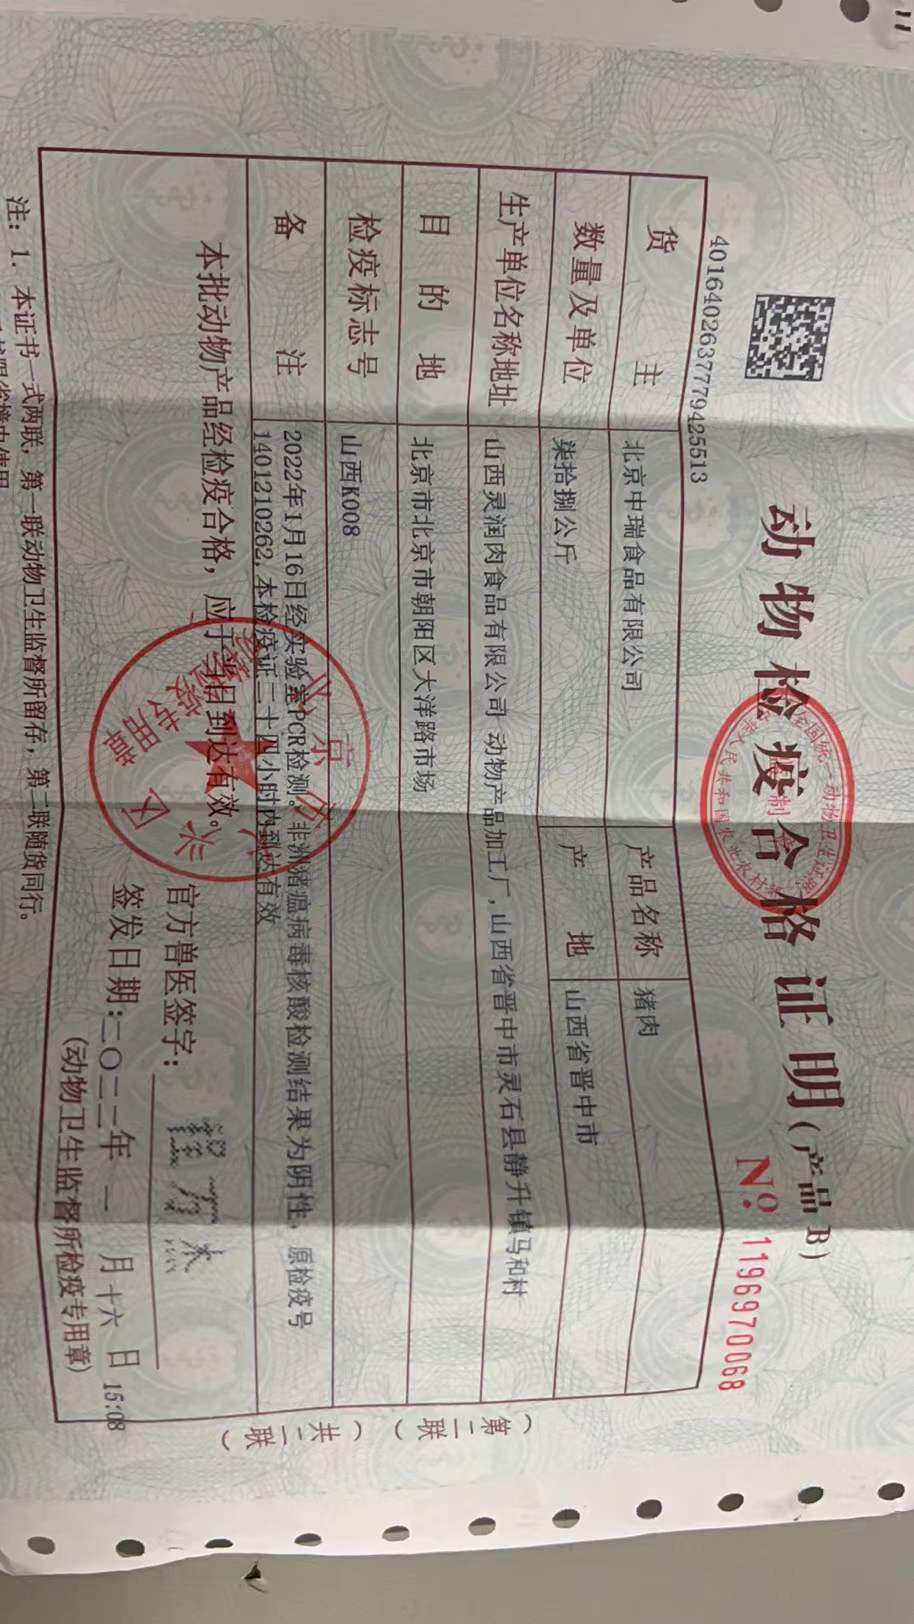 动物检疫合格证明(产品 B)
4016402637779425513
№ 1196970068
货主 北京中瑞食品有限公司 产品名称 猪肉
数量及单位 柒拾捌公斤 产地 山西省晋中市
生产单位名称地址 山西灵润肉食品有限公司 动物产品加工厂,山西省晋中市灵石县静升镇马和村
目的地 北京市北京市朝阳区大洋路市场
检疫标志号 山西K008
备注 2022年1月16日经实验室PCR检测。非洲猪瘟病毒核酸检测结果为阴性。原检疫号
1401210262,本检疫证二十四小时内到达有效
本批动物产品经检疫合格,应于当日到达有效。
官方兽医签字:
签发日期:二〇二二年 一 月十六 日 15:08
(动物卫生监督所检疫专用章)
注: 1. 本证书一式两联,第一联动物卫生监督所留存,第二联随货同行。
(第二联)
(共二联)